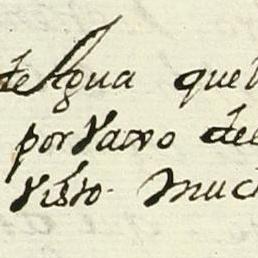 de Agua que
por Vaxo del
visto. Muc